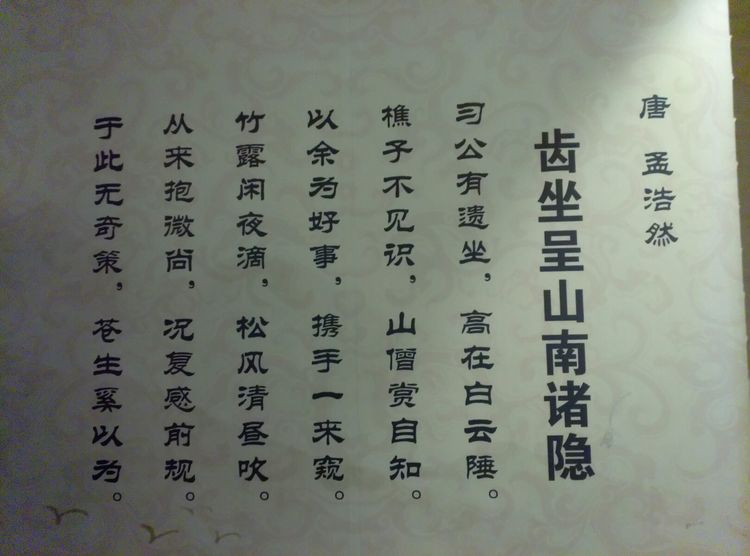 唐 孟浩然
齿坐呈山南诸隐
习公有遗坐，高在白云陲。
樵子不见识，山僧赏自知。
以余为好事，携手一来窥。
竹露闲夜滴，松风清昼吹。
从来抱微尚，况复感前规。
于此无奇策，苍生奚以为。